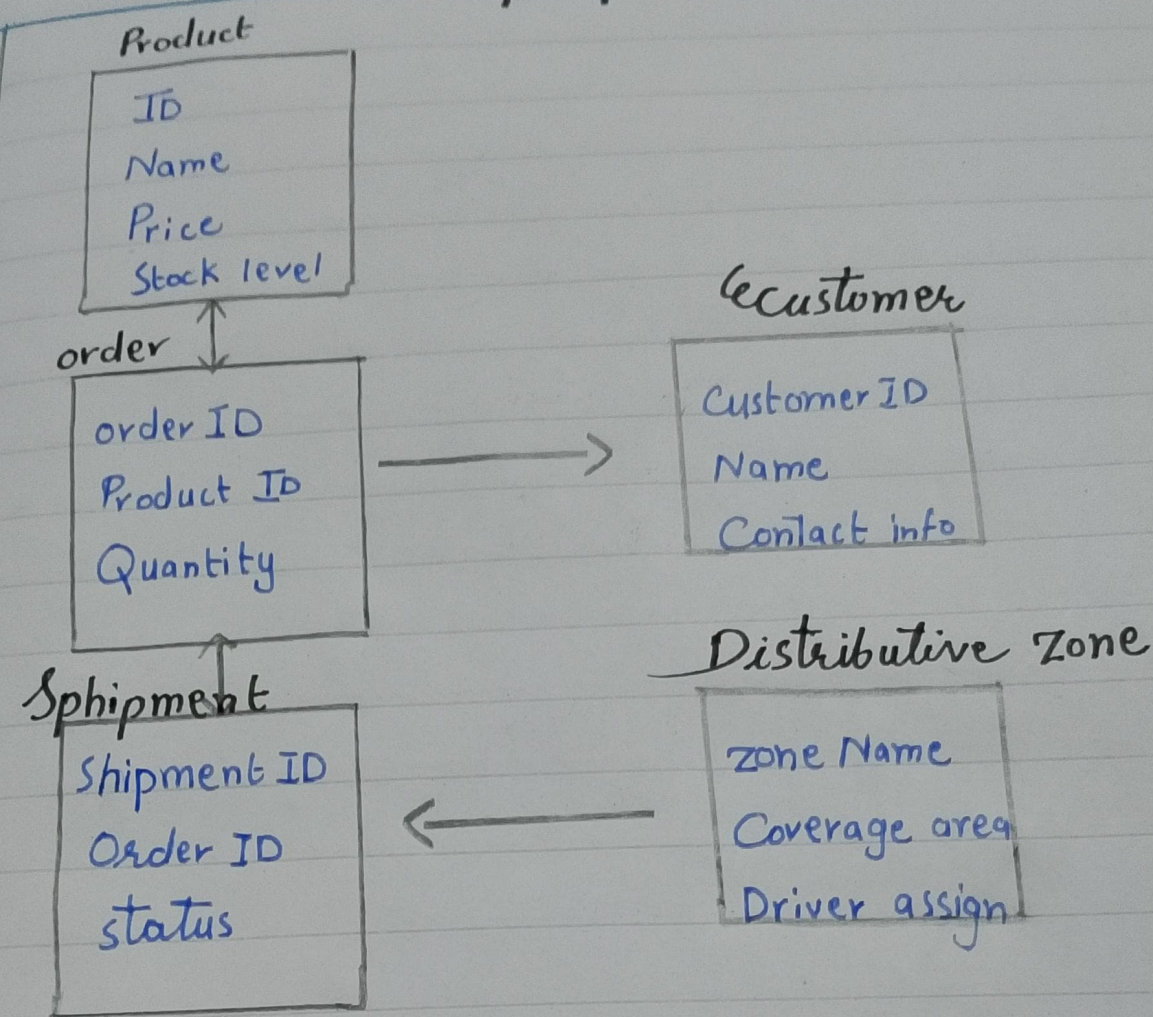 Product
ID
Name
Price
Stock level
order
order ID
Product ID
Quantity
Customer
Customer ID
Name
Contact info
Sphipment
Shipment ID
Order ID
status
Distributive zone
zone Name
Coverage area
Driver assign